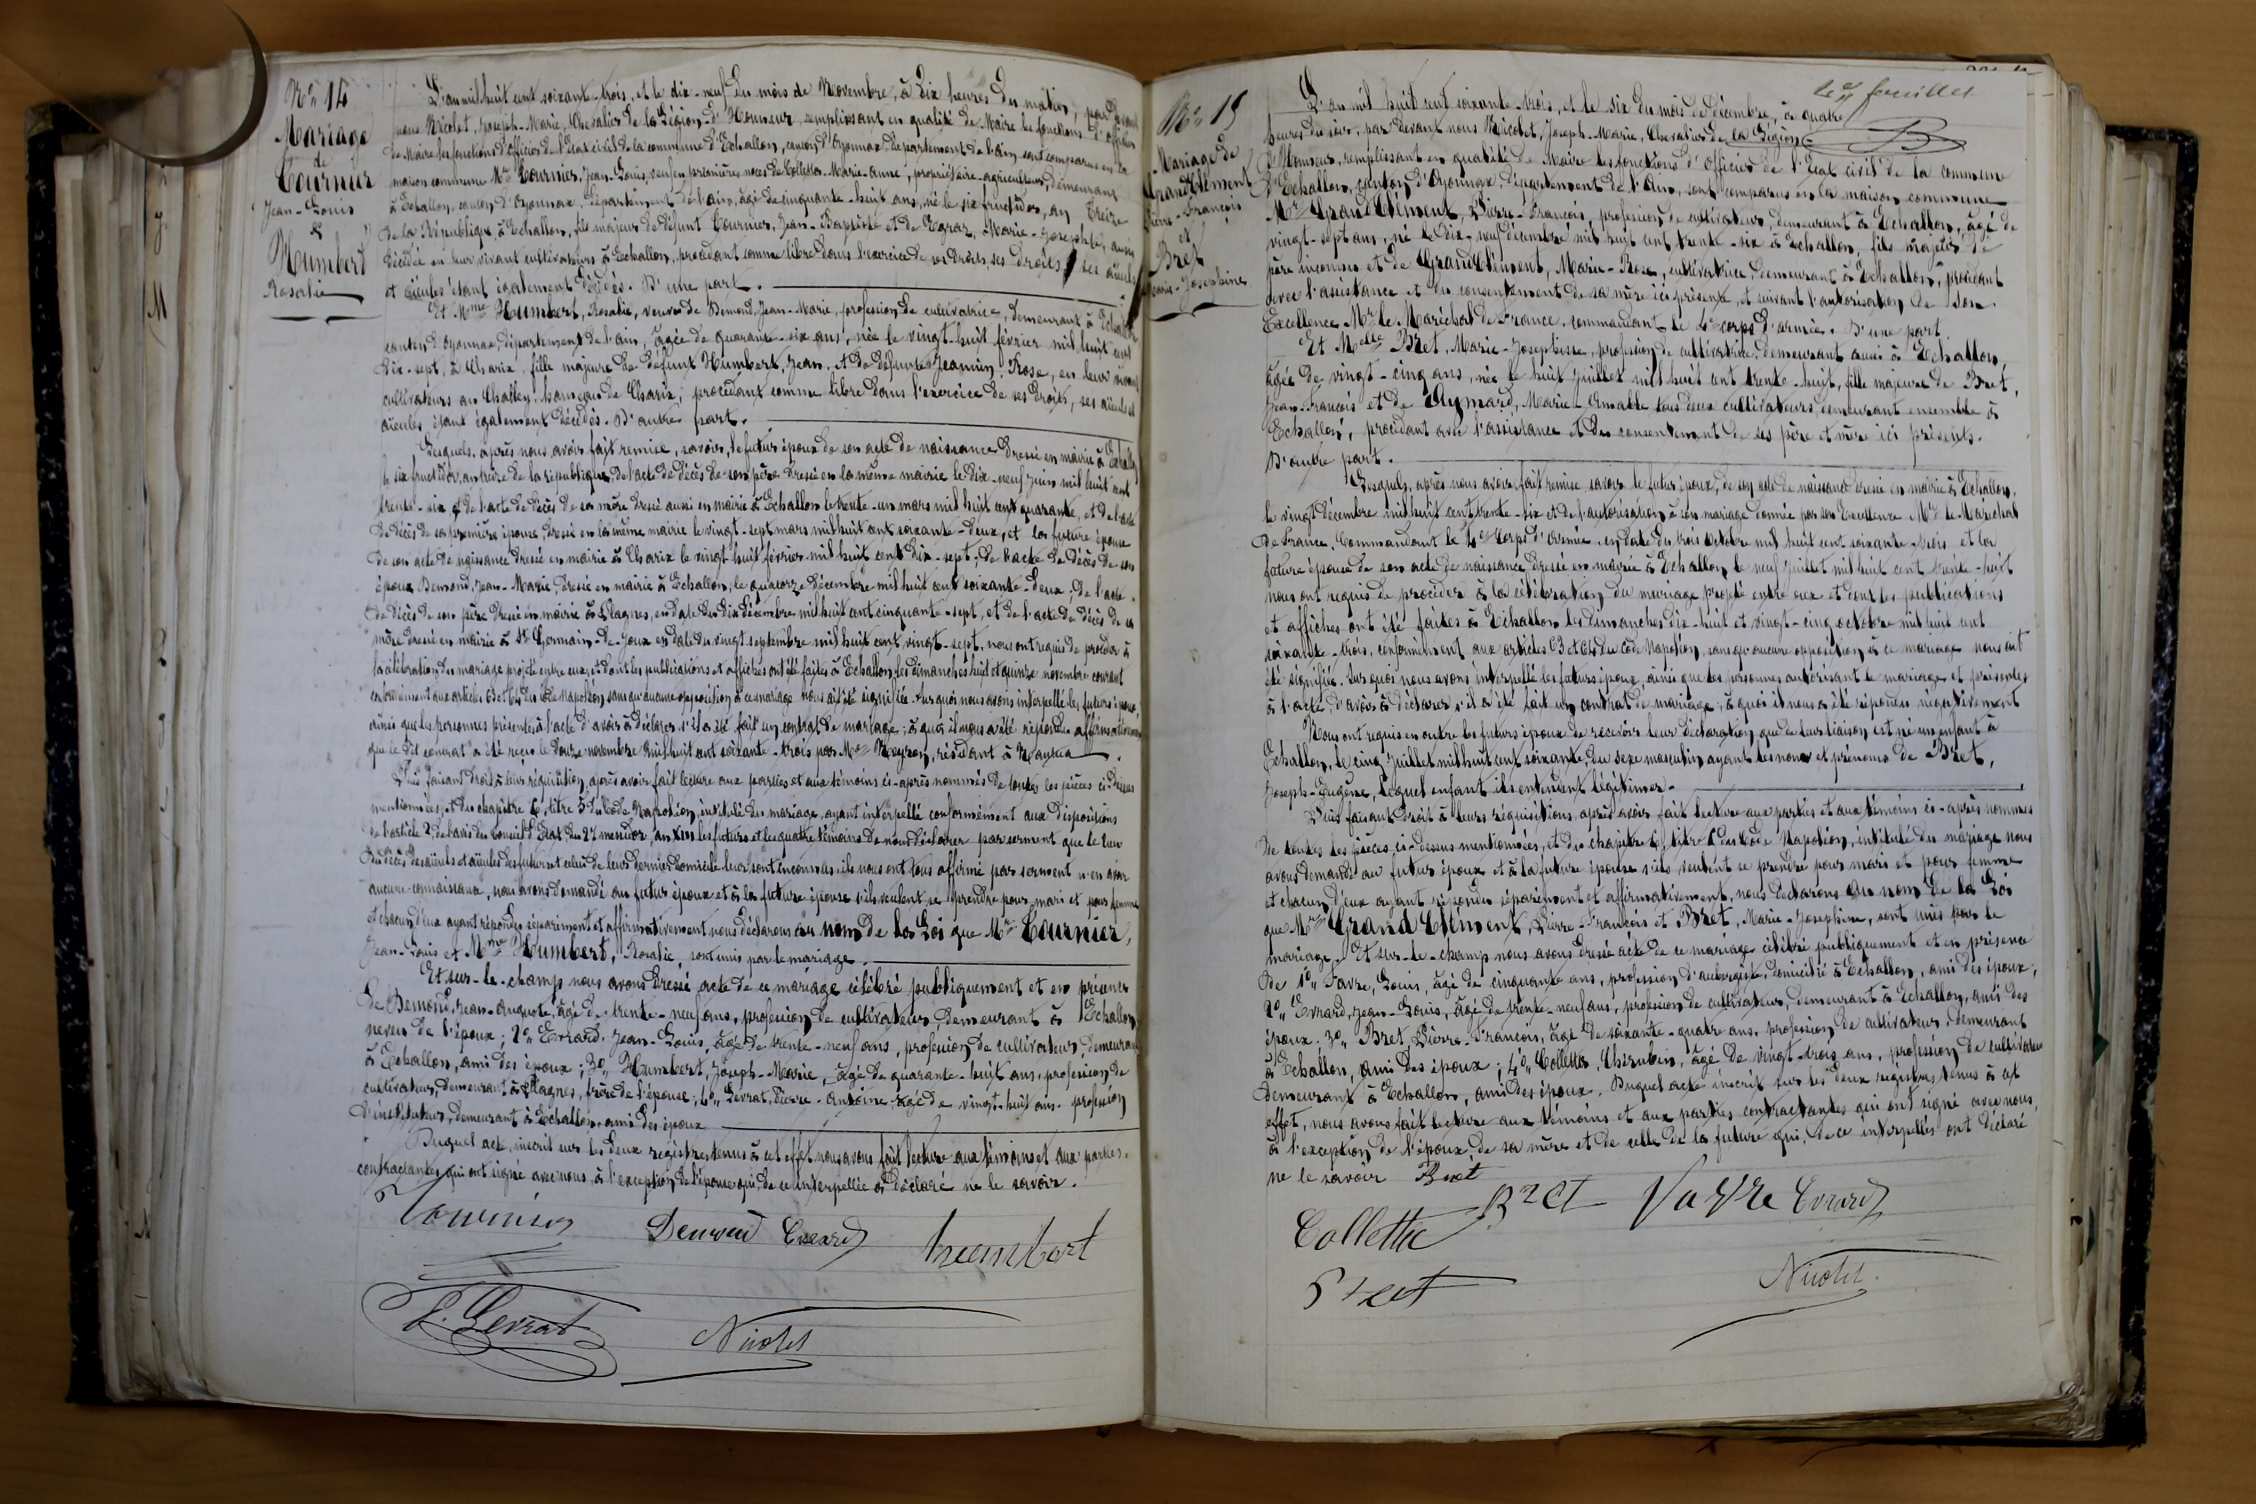 Nº 14
Mariage
de
Tournier
Jean-Louis
&
Humbert
Rosalie
L'an mil huit cent soixante-trois, et le dix-neuf du mois de Novembre, à dix heures du matin, par devant
nous Nicolet, Joseph-Marie, Chevalier de la Légion-d'Honneur, remplissant en qualité de Maire les fonctions d'officier
de Maire les fonctions d'officier de l'Etat civil de la commune d'Echallon, canton d'Oyonnax, département de l'ain, sont comparus en la
maison commune Mr Tournier, Jean-Louis, veuf en premières noces de Colletta Marie-anne, propriétaire-agriculteur, demeurant
à Echallon, canton d'Oyonnax, département de l'ain, âgé de cinquante-huit ans, né le six fructidor, an treize
de la République à Echallon, fils majeur de défunt Tournier, Jean-Baptiste et de Egraz, Marie-Josephte, aussi
décédée en leur vivant cultivateurs à Echallon, procédant comme libre dans l'exercice de ses droits, ses aïeuls
et aïeules étant également décédés. D'une part.
Et Mme Humbert, Rosalie, veuve de Demond, Jean-Marie, profession de cultivatrice, demeurant à Echallon
canton d'Oyonnax, département de l'ain, âgée de quarante-six ans, née le vingt-huit février mil huit cent
dix-sept, à Charix, fille majeure de défunt Humbert, Jean, et de défunte Jeannin, Rose, en leur vivant
cultivateurs au Chatley, hameau de Charix, procédant comme libre dans l'exercice de ses droits, ses aïeuls et
aïeules étant également décédés. D'autre part.
Lesquels, après nous avoir fait remise, savoir, le futur époux de son acte de naissance dressé en mairie à Echallon
le six fructidor, an treize de la république, de l'acte de décès de son père dressé en la même mairie le dix-neuf juin mil huit cent
trente-six et de l'acte de décès de sa mère dressé aussi en mairie à Echallon le trente-un mars mil huit cent quarante, et de l'acte
de décès de sa première épouse, dressé en la même mairie le vingt-sept mars mil huit cent soixante-deux, et la future épouse
de son acte de naissance dressé en mairie à Charix le vingt-huit février mil huit cent dix-sept, de l'acte de décès de son
époux Demond, Jean-Marie, dressé en mairie à Echallon, le quatorze décembre mil huit cent soixante-deux, de l'acte
de décès de son père dressé en mairie à Plagnes, en date du dix décembre mil huit cent cinquante-sept, et de l'acte de décès de sa
mère dressé en mairie à St Germain-de-Joux en date du vingt septembre mil huit cent vingt-sept, nous ont requis de procéder à
la célébration du mariage projeté entre eux, et dont les publications et affiches ont été faites à Echallon, les dimanches huit et quinze novembre courant
conformément aux articles 63 et 64 du Code Napoléon sans qu'aucune opposition à ce mariage nous ait été signifiée. Sur quoi nous avons interpellé les futurs époux,
ainsi que les personnes présentes à l'acte d'avoir à déclarer s'il a été fait un contrat de mariage; à quoi il nous a été répondu affirmativement
que le dit contrat a été reçu le douze novembre mil huit cent soixante-trois par Me Meyson, résidant à Nantua.
Puis faisant droit à leur réquisition, après avoir fait lecture aux parties et aux témoins ci-après nommés de toutes les pièces ci-dessus
mentionnées, et du chapitre 6, titre 5 du Code Napoléon, intitulé du mariage, ayant interpellé conformément aux dispositions
de l'article 2, de l'avis du Conseil d'Etat du 27 messidor, an XIII les futurs et les quatre témoins de nous déclarer par serment que le lieu
du décès des aïeuls et aïeules des futurs et celui de leur dernier domicile leur sont inconnus, ils nous ont tous affirmé par serment n'en avoir
aucune connaissance, nous avons demandé au futur époux et à la future épouse s'ils veulent se prendre pour mari et pour femme
et chacun d'eux ayant répondu séparément et affirmativement nous déclarons au nom de la Loi que Mr Tournier,
Jean-Louis et Mme Humbert, Rosalie, sont unis par le mariage.
Et sur-le-champ nous avons dressé acte de ce mariage célébré publiquement et en présence
de Demond, Jean-Auguste, âgé de trente-neuf ans, profession de cultivateur, demeurant à Echallon,
neveu de l'époux; 2º Evrard, Jean-Louis, âgé de trente-neuf ans, profession de cultivateur, demeurant
à Echallon, ami des époux; 3º Humbert, Joseph-Marie, âgé de quarante-huit ans, profession de
cultivateur, demeurant à Plagnes, frère de l'épouse; 4º Levrat, Pierre-antoine, âgé de vingt-huit ans, profession
d'instituteur, demeurant à Echallon, ami des époux
Duquel acte, inscrit sur les deux registres tenus à cet effet nous avons fait lecture aux témoins et aux parties
contractantes qui ont signé avec nous, à l'exception de l'épouse qui, de ce interpellée a déclaré ne le savoir.
Tournier
Demond Evrard
humbert
P. Levrat
Nicolet
2e et dernier feuillet
Nº 15
Mariage de
Grand Clément
Pierre-François
et
Bret
Marie-Josephine
L'an mil huit cent soixante-trois, et le six du mois de décembre, à quatre
heures du soir, par devant nous Nicolet, Joseph-Marie, Chevalier de la Légion
d'Honneur, remplissant en qualité de Maire les fonctions d'Officier de l'Etat civil de la commune
d'Echallon, canton d'Oyonnax, département de l'Ain, sont comparus en la maison commune
Mr Grand Clément, Pierre-François, profession de cultivateur, demeurant à Echallon, âgé de
vingt-sept ans, né le dix-neuf décembre mil huit cent trente-six à Echallon, fils majeur de
père inconnu et de Grand Clément, Marie-Rose, cultivatrice, demeurant à Echallon, procédant
avec l'assistance et du consentement de sa mère ici présente, et suivant l'autorisation de Son
Excellence Mr le Maréchal de France, commandant le 4e corps d'armée. D'une part.
Et Melle Bret, Marie-Josephine, profession de cultivatrice, demeurant aussi à Echallon,
âgée de vingt-cinq ans, née le huit juillet mil huit cent trente-huit, fille majeure de Bret,
Jean-François et de Aymard, Marie-Aimable tous deux cultivateurs, demeurant ensemble à
Echallon, procédant avec l'assistance et du consentement de ses père et mère ici présents.
D'autre part.
Lesquels, après nous avoir fait remise savoir le futur époux, de son acte de naissance dressé en mairie à Echallon,
le vingt décembre mil huit cent trente-six et de l'autorisation à son mariage donnée par son Excellence Mr le Maréchal
de France, Commandant le 4e Corps d'armée, en date du trois octobre mil huit cent soixante-trois et la
future épouse de son acte de naissance dressé en mairie à Echallon le neuf juillet mil huit cent trente-huit
nous ont requis de procéder à la célébration du mariage projeté entre eux et dont les publications
et affiches ont été faites à Echallon les dimanches dix-huit et vingt-cinq octobre mil huit cent
soixante-trois, conformément aux articles 63 et 64 du Code Napoléon, sans qu'aucune opposition à ce mariage nous ait
été signifié. Sur quoi nous avons interpellé les futurs époux, ainsi que les personnes autorisant le mariage et présentes
à l'acte, d'avoir à déclarer s'il a été fait un contrat de mariage, à quoi il nous a été répondu négativement
Nous ont requis en outre les futurs époux de recevoir leur déclaration que de leur liaison est né un enfant à
Echallon, le cinq juillet mil huit cent soixante, du sexe masculin ayant les nom et prénoms de Bret,
Joseph-Eugène, lequel enfant ils entendent légitimer.
Puis faisant droit à leurs réquisitions, après avoir fait lecture aux parties et aux témoins ci-après nommés
de toutes les pièces ci-dessus mentionnées, et du chapitre 6, titre 5 du Code Napoléon, intitulé du mariage nous
avons demandé au futur époux et à la future épouse s'ils veulent se prendre pour mari et pour femme
et chacun d'eux ayant répondu séparément et affirmativement, nous déclarons au nom de la Loi
que Mr Grand Clément, Pierre-François et Bret, Marie-Josephine, sont unis par le
mariage. Et sur-le-champ nous avons dressé acte de ce mariage célébré publiquement et en présence
de 1º Favre, Louis, âgé de cinquante ans, profession d'aubergiste, domicilié à Echallon, ami des époux;
2º Evrard, Jean-Louis, âgé de trente-neuf ans, profession de cultivateur, demeurant à Echallon, ami des
époux. 3º Bret, Pierre-François, âgé de soixante-quatre ans, profession de cultivateur, demeurant
à Echallon, ami des époux; 4º Colletta, Chérubin, âgé de vingt-trois ans, profession de cultivateur
demeurant à Echallon, ami des époux. Duquel acte inscrit sur les deux registres tenus à cet
effet, nous avons fait lecture aux témoins et aux parties contractantes qui ont signé avec nous,
à l'exception de l'époux, de sa mère et de celle de la future qui, de ce interpellés ont déclaré
ne le savoir Bret
Colletta Bret Favre Evrard
Bret
Nicolet